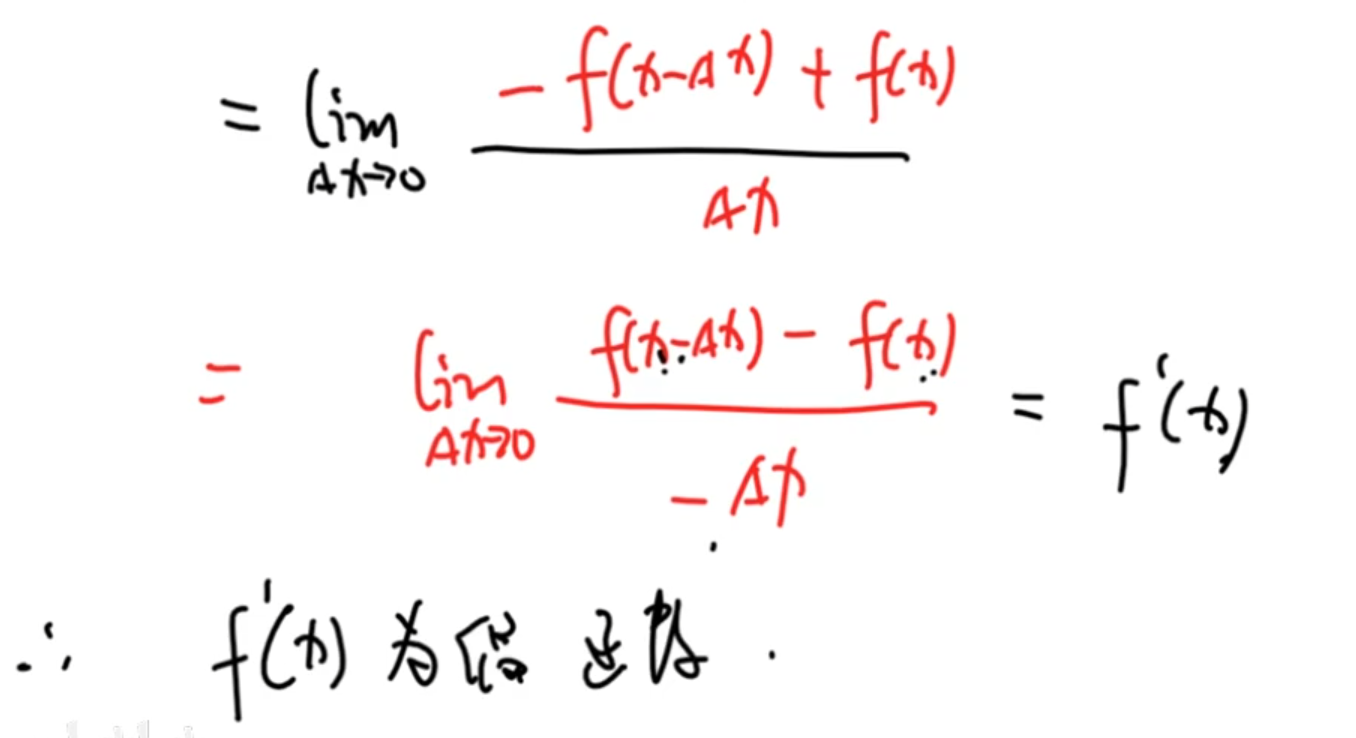 = lim Δx→0 (-f(x-Δx) + f(x)) / Δx
= lim Δx→0 (f(x-Δx) - f(x)) / (-Δx) = f'(x)
∴ f'(x) 为偶函数.